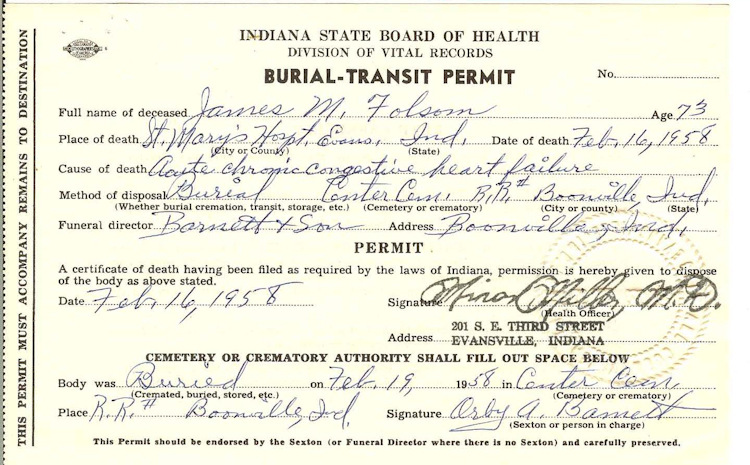 INDIANA STATE BOARD OF HEALTH
DIVISION OF VITAL RECORDS
BURIAL-TRANSIT PERMIT
No.
Full name of deceased James M. Folsom Age 73
Place of death St. Mary's Hospt. Evans, Ind. Date of death Feb. 16, 1958
(City or County) (State)
Cause of death Acute chronic congestive heart failure
Method of disposal Burial Center Cem. R.R.# Boonville, Ind.
(Whether burial cremation, transit, storage, etc.) (Cemetery or crematory) (City or county) (State)
Funeral director Barnett & Son Address Boonville, Ind.
PERMIT
A certificate of death having been filed as required by the laws of Indiana, permission is hereby given to dispose
of the body as above stated.
Date Feb. 16, 1958 Signature Minor Miller, M.D.
(Health Officer)
Address 201 S. E. THIRD STREET
EVANSVILLE, INDIANA
CEMETERY OR CREMATORY AUTHORITY SHALL FILL OUT SPACE BELOW
Body was Buried on Feb. 19, 1958 in Center Cem.
(Cremated, buried, stored, etc.) (Cemetery or crematory)
Place R.R.# Boonville, Ind. Signature Orby A. Barnett
(Sexton or person in charge)
This Permit should be endorsed by the Sexton (or Funeral Director where there is no Sexton) and carefully preserved.
THIS PERMIT MUST ACCOMPANY REMAINS TO DESTINATION